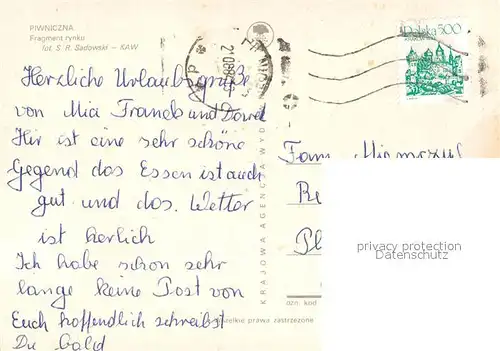 PIWNICZNA
Fragment rynku
fot. S. R. Sadowski — KAW
Polska 5.00
Herzliche Urlaubsgrüße
von Mia Franek und Dorel
Hir ist eine sehr schöne
Gegend das Essen ist auch
gut und das. Wetter
ist herlich
Ich habe schon sehr
lange keine Post von
Euch hoffendlich schreibst
Du bald
KRAJOWA AGENCJA WYDAW
Fam.
Re
Pl
privacy protection
Datenschutz
ozn. kod
wszelkie prawa zastrzeżone